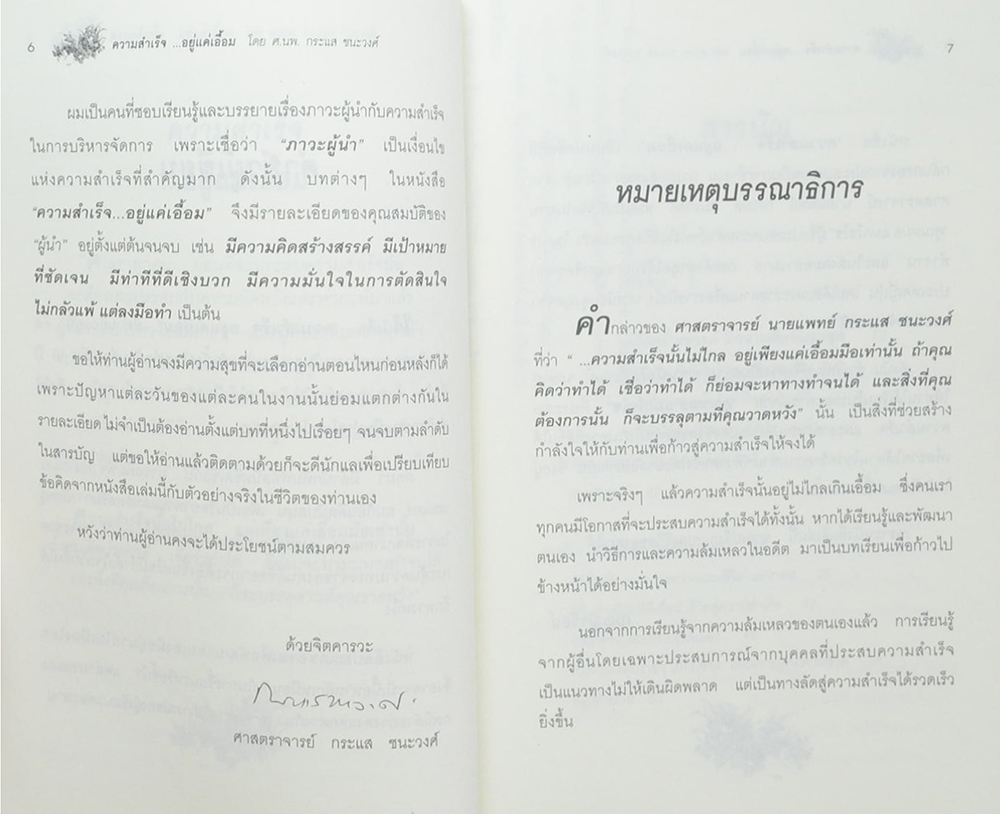 6
ความสำเร็จ ...อยู่แค่เอื้อม โดย ศ.นพ. กระแส ชนะวงศ์
ผมเป็นคนที่ชอบเรียนรู้และบรรยายเรื่องภาวะผู้นำกับความสำเร็จ
ในการบริหารจัดการ เพราะเชื่อว่า "ภาวะผู้นำ" เป็นเงื่อนไข
แห่งความสำเร็จที่สำคัญมาก ดังนั้น บทต่างๆ ในหนังสือ
"ความสำเร็จ...อยู่แค่เอื้อม" จึงมีรายละเอียดของคุณสมบัติของ
"ผู้นำ" อยู่ตั้งแต่ต้นจนจบ เช่น มีความคิดสร้างสรรค์ มีเป้าหมาย
ที่ชัดเจน มีท่าทีที่ดีเชิงบวก มีความมั่นใจในการตัดสินใจ
ไม่กลัวแพ้ แต่ลงมือทำ เป็นต้น
ขอให้ท่านผู้อ่านจงมีความสุขที่จะเลือกอ่านตอนไหนก่อนหลังก็ได้
เพราะปัญหาแต่ละวันของแต่ละคนในงานนั้นย่อมแตกต่างกันใน
รายละเอียด ไม่จำเป็นต้องอ่านตั้งแต่บทที่หนึ่งไปเรื่อยๆ จนจบตามลำดับ
ในสารบัญ แต่ขอให้อ่านแล้วติดตามด้วยก็จะดีนักแลเพื่อเปรียบเทียบ
ข้อคิดจากหนังสือเล่มนี้กับตัวอย่างจริงในชีวิตของท่านเอง
หวังว่าท่านผู้อ่านคงจะได้ประโยชน์ตามสมควร
ด้วยจิตคารวะ
ศาสตราจารย์ กระแส ชนะวงศ์
7
หมายเหตุบรรณาธิการ
คำกล่าวของ ศาสตราจารย์ นายแพทย์ กระแส ชนะวงศ์
ที่ว่า " ...ความสำเร็จนั้นไม่ไกล อยู่เพียงแค่เอื้อมมือเท่านั้น ถ้าคุณ
คิดว่าทำได้ เชื่อว่าทำได้ ก็ย่อมจะหาทางทำจนได้ และสิ่งที่คุณ
ต้องการนั้น ก็จะบรรลุตามที่คุณวาดหวัง" นั้น เป็นสิ่งที่ช่วยสร้าง
กำลังใจให้กับท่านเพื่อก้าวสู่ความสำเร็จให้จงได้
เพราะจริงๆ แล้วความสำเร็จนั้นอยู่ไม่ไกลเกินเอื้อม ซึ่งคนเรา
ทุกคนมีโอกาสที่จะประสบความสำเร็จได้ทั้งนั้น หากได้เรียนรู้และพัฒนา
ตนเอง นำวิธีการและความล้มเหลวในอดีต มาเป็นบทเรียนเพื่อก้าวไป
ข้างหน้าได้อย่างมั่นใจ
นอกจากการเรียนรู้จากความล้มเหลวของตนเองแล้ว การเรียนรู้
จากผู้อื่นโดยเฉพาะประสบการณ์จากบุคคลที่ประสบความสำเร็จ
เป็นแนวทางไม่ให้เดินผิดพลาด แต่เป็นทางลัดสู่ความสำเร็จได้รวดเร็ว
ยิ่งขึ้น